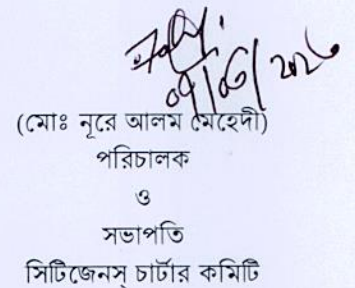 (মোঃ নূরে আলম মেহেদী)
পরিচালক
ও
সভাপতি
সিটিজেনস্ চার্টার কমিটি